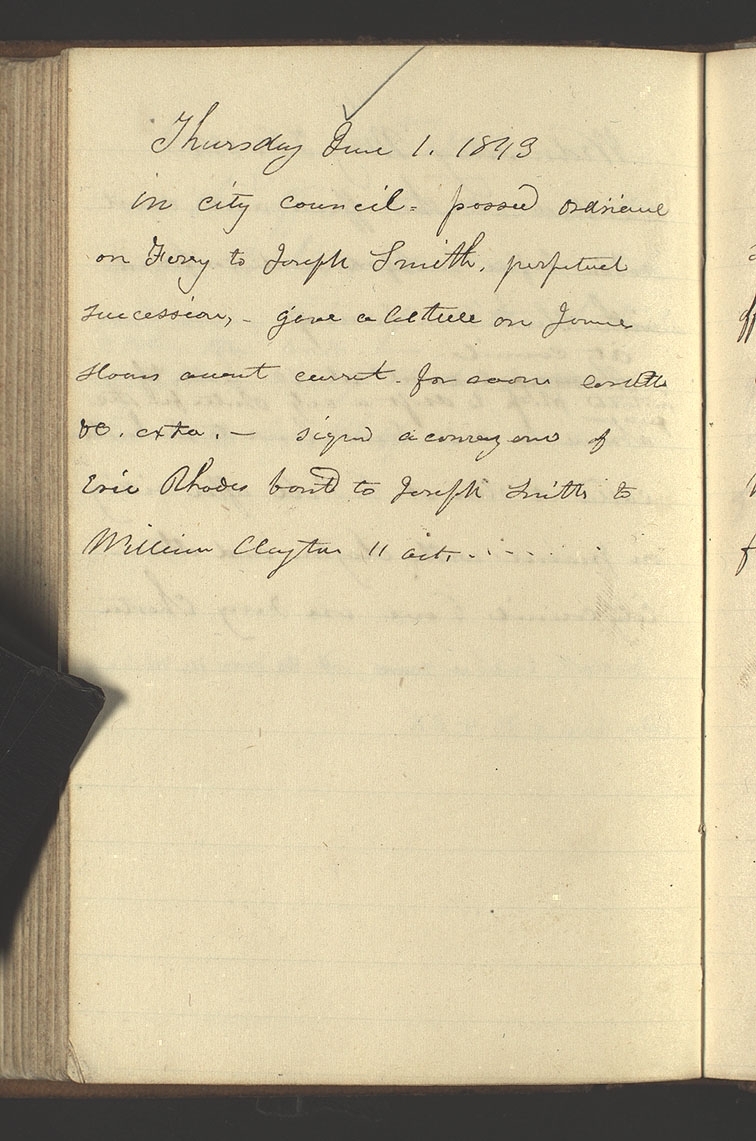 Thursday June 1. 1843
in city council= passed ordinance
on Ferry to Joseph Smith. perpetual
succession,– gave a lecture on James
Sloans account current. for
&c. extra.— signed a conveyance of
Eric Rhodes bond to Joseph Smith to
William Clayton 11 act. . . . . .